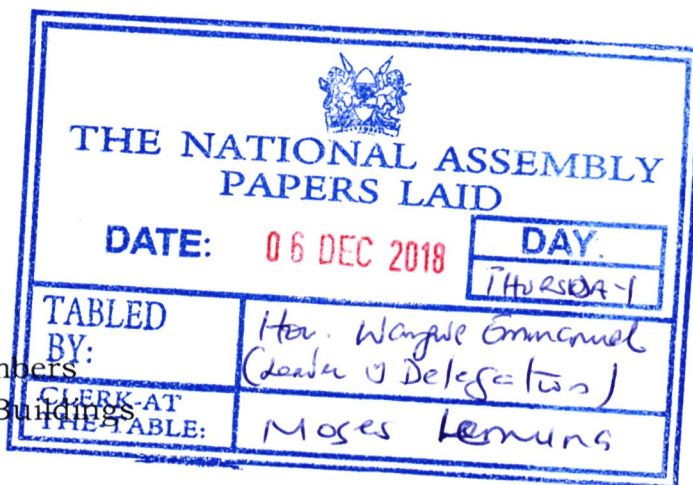 THE NATIONAL ASSEMBLY
PAPERS LAID
DATE: 06 DEC 2018
DAY.
THURSDAY
TABLED
BY:
Hon. Wangwe Emmanuel
(Leader of Delegation)
mbers
Buildings
CLERK-AT
THE-TABLE:
Moses Lemuna